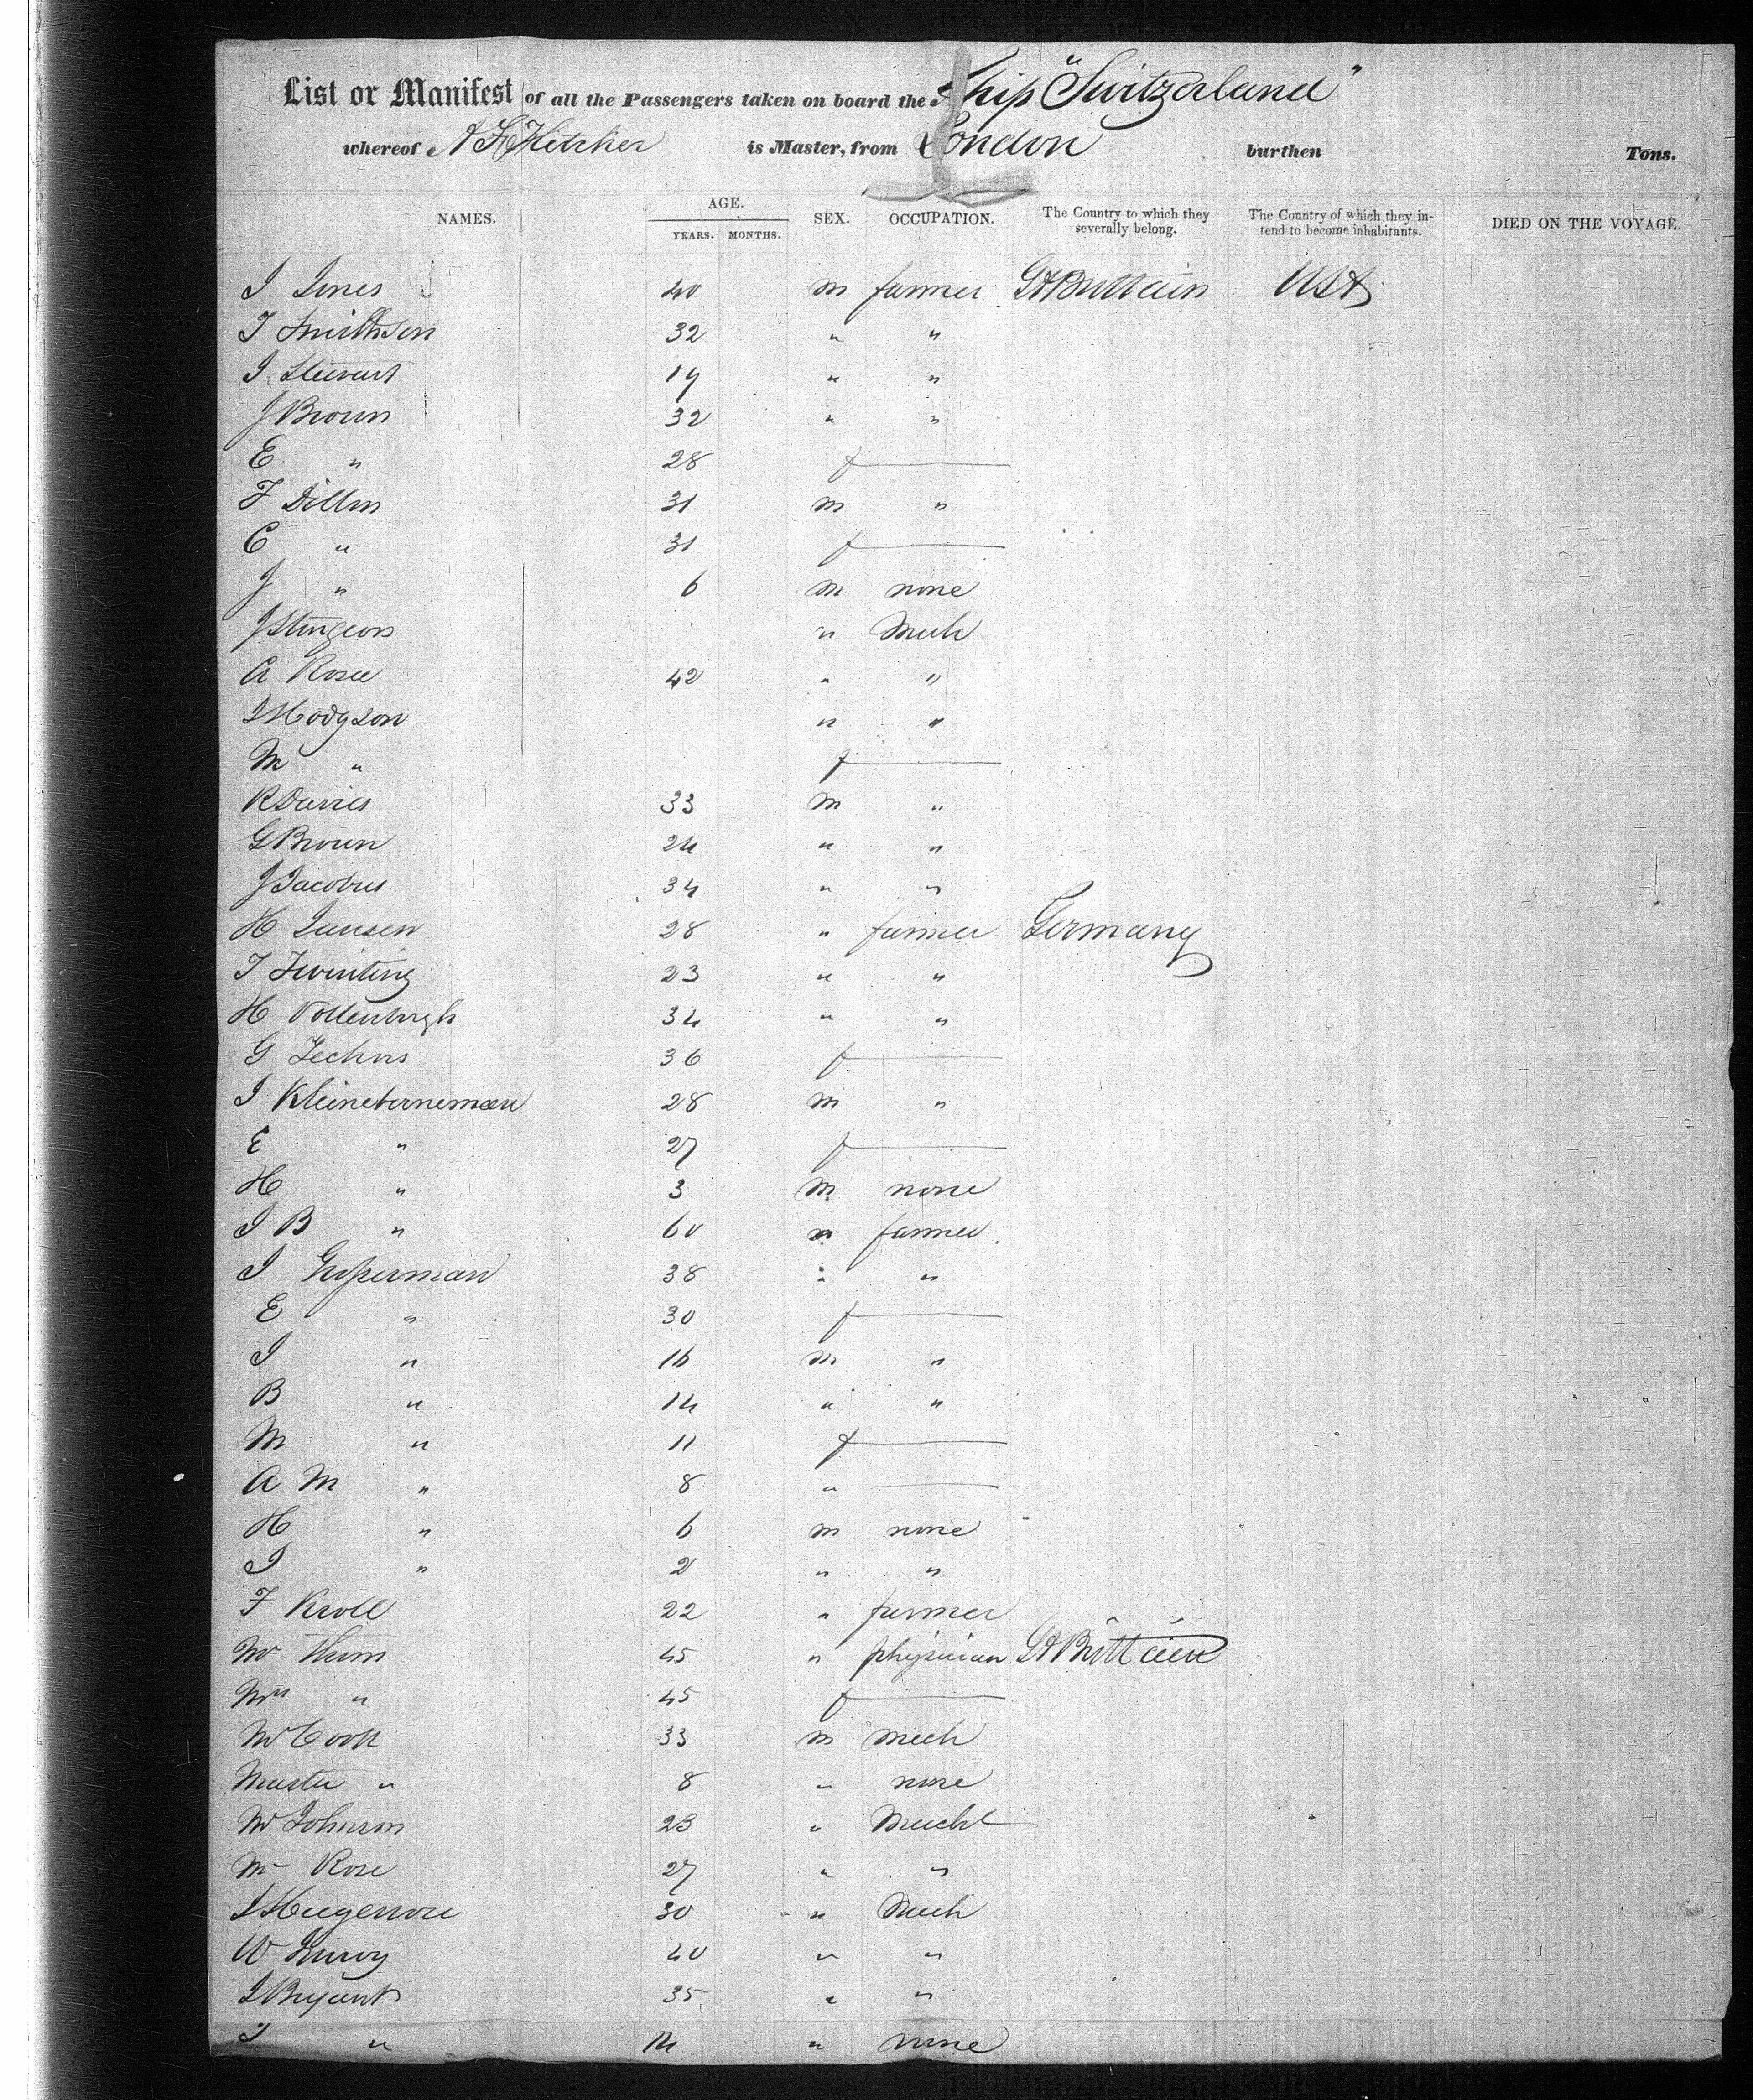 List or Manifest of all the Passengers taken on board the Ship "Switzerland"
whereof A F Fletcher is Master, from London burthen Tons.
NAMES. AGE. YEARS. MONTHS. SEX. OCCUPATION. The Country to which they severally belong. The Country of which they intend to become inhabitants. DIED ON THE VOYAGE.
J Jones 40 m farmer Gt Brittain USA
T Smithson 32 " "
J Stewart 19 " "
J Brown 32 " "
E " 28 f
F Dillon 31 m "
C " 31 f
J " 6 m none
J Sturgeon " Mech
A Rosee 42 " "
J Hodgson " "
M " f
R Davies 33 m "
G Brown 24 " "
J Jacobus 34 " "
H Jansen 28 " farmer Germany
T 23 " "
H Vollenbergh 34 " "
G 36 f
J Kleinebernemann 28 m "
E " 27 f
H " 3 m none
J B " 60 " farmer
J 38 " "
E " 30 f
J " 16 m "
B " 14 " "
M " 11 f
A M " 8 "
H " 6 m none
J " 2 " "
F Kroll 22 " farmer
Mr 45 " physician Gt Brittain
Mrs " 45 f
Mr Cook 33 m mech
Master " 8 " none
Mr Johnson 23 " Mech
Mr Rose 27 " "
J 30 " Mech
W 40 " "
J Bryant 35 " "
J " 14 " none